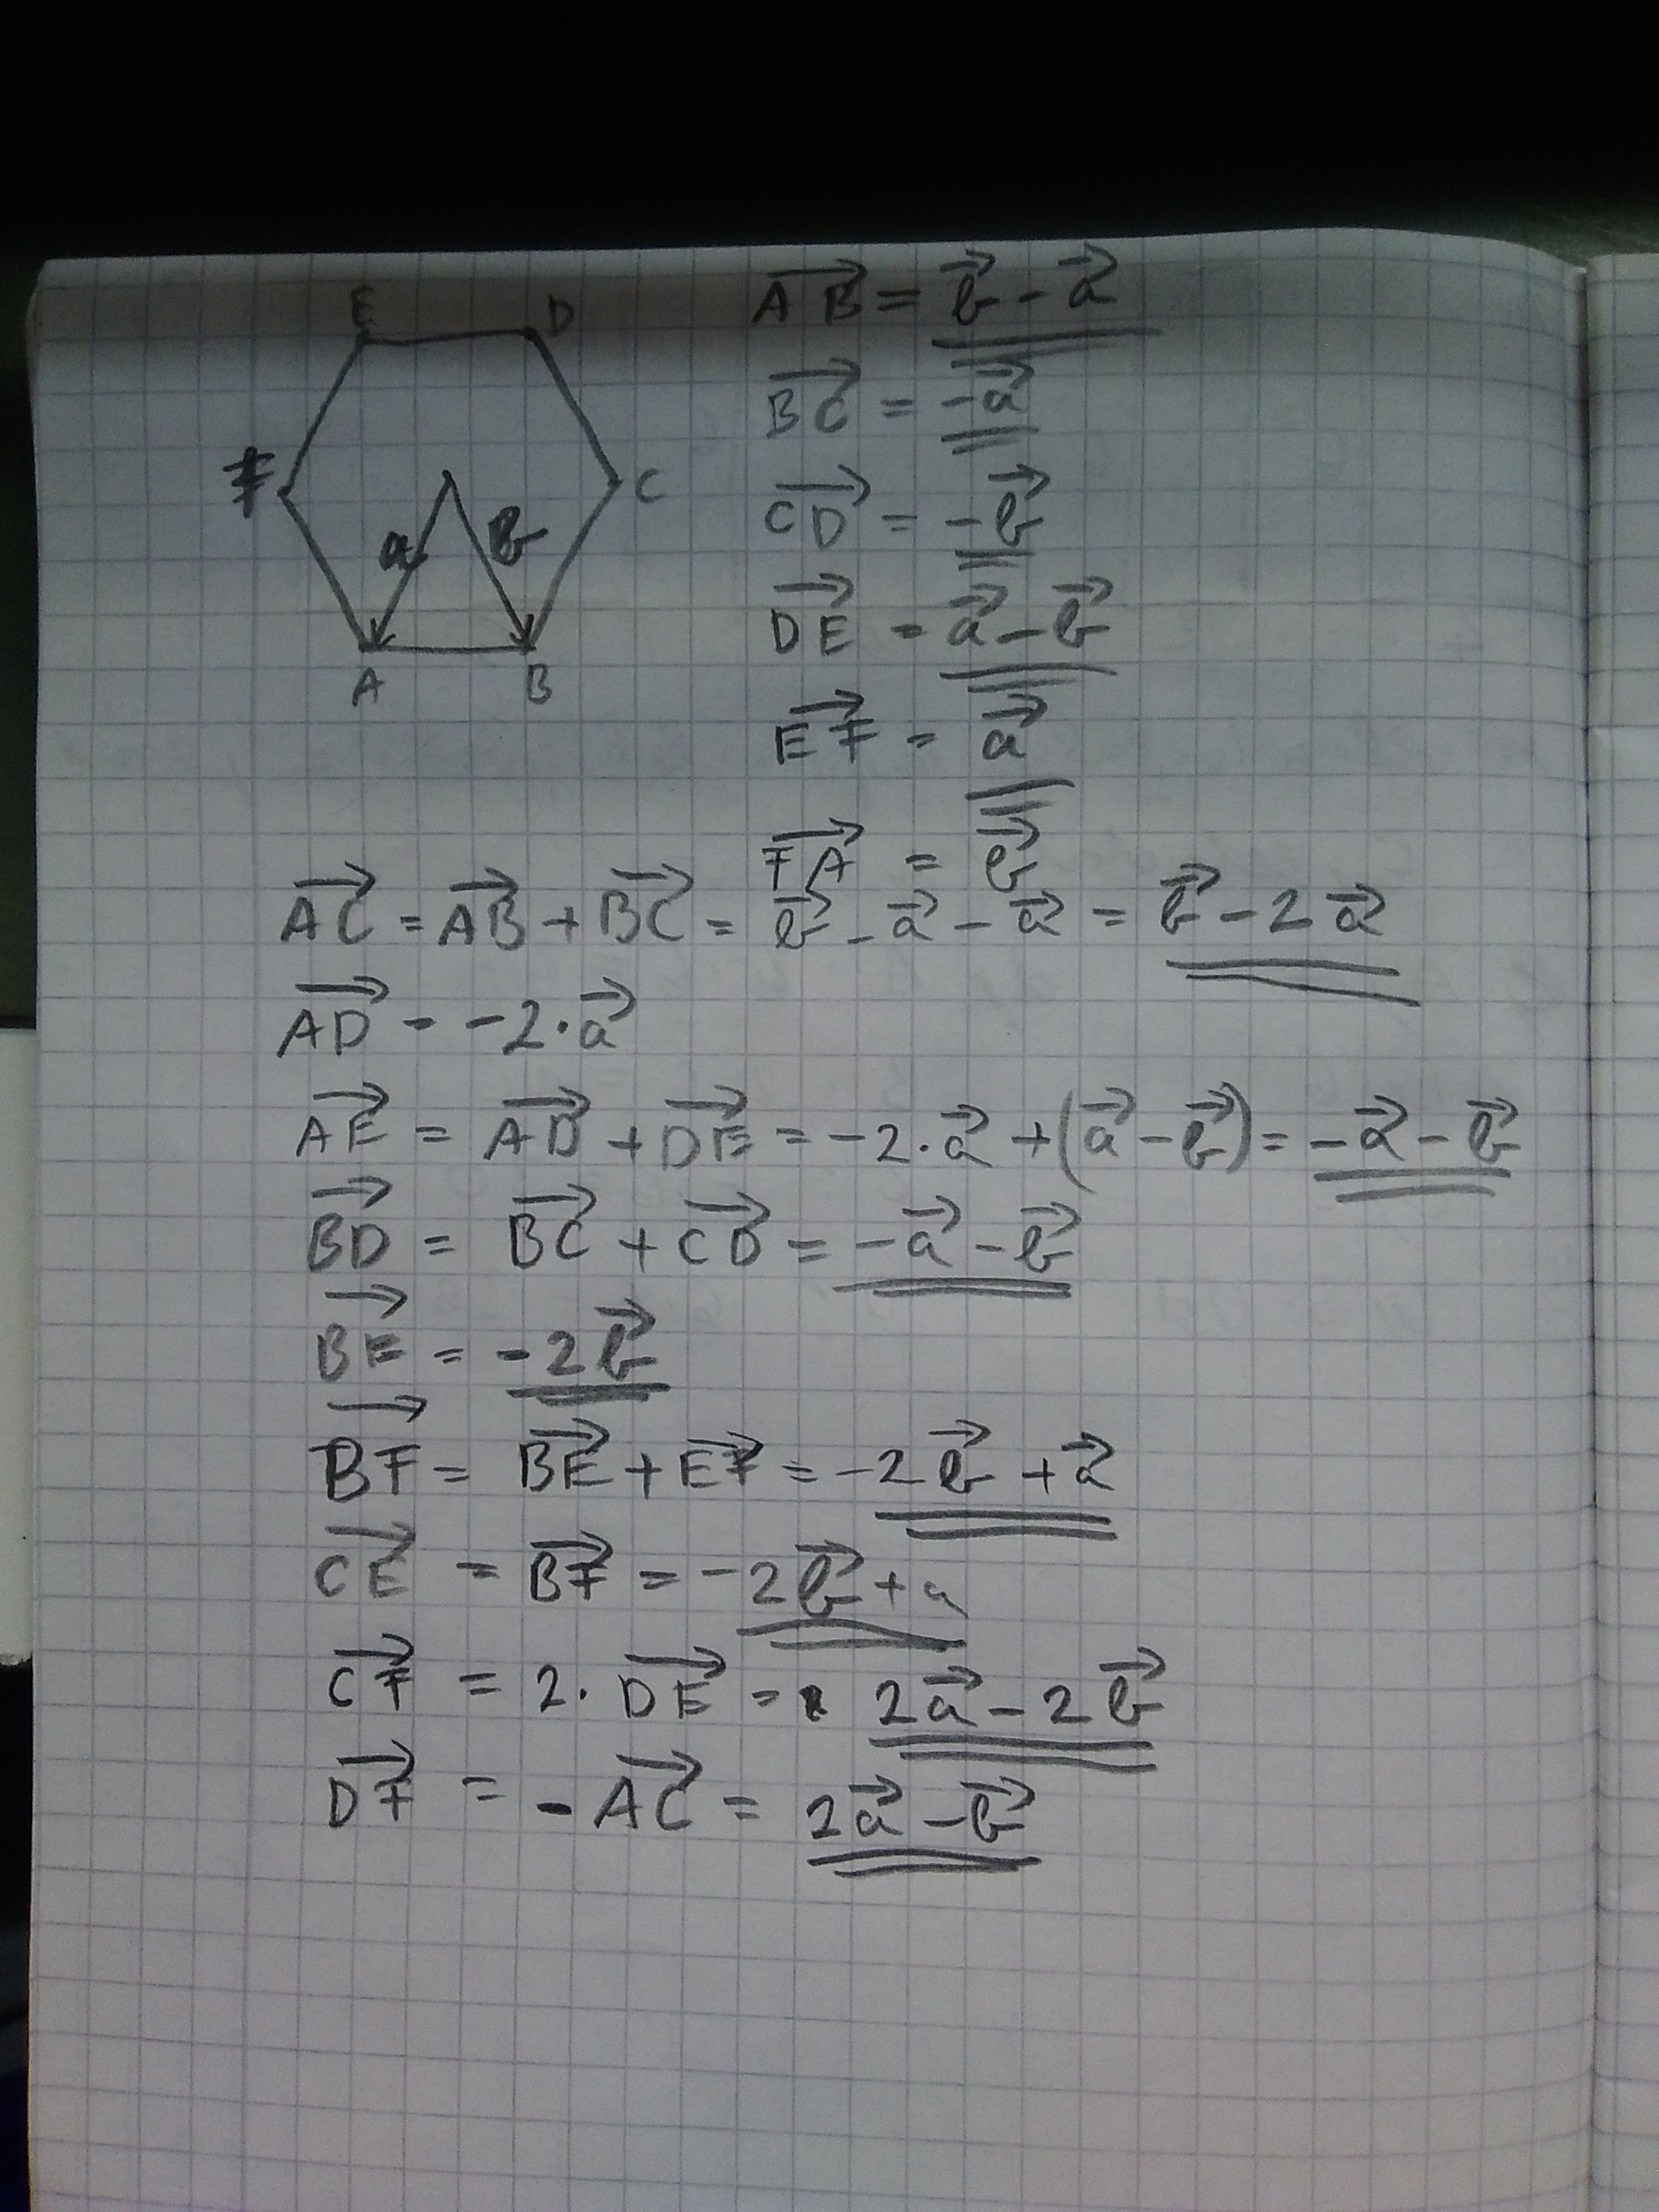 E D
F C
a b
A B
AB⃗ = b⃗ - a⃗
BC⃗ = -a⃗
CD⃗ = -b⃗
DE⃗ = a⃗ - b⃗
EF⃗ = a⃗
FA⃗ = b⃗
AC⃗ = AB⃗ + BC⃗ = b⃗ - a⃗ - a⃗ = b⃗ - 2a⃗
AD⃗ - -2·a⃗
AE⃗ = AD⃗ + DE⃗ = -2·a⃗ + (a⃗ - b⃗) = -a⃗ - b⃗
BD⃗ = BC⃗ + CD⃗ = -a⃗ - b⃗
BE⃗ = -2b⃗
BF⃗ = BE⃗ + EF⃗ = -2b⃗ + a⃗
CE⃗ = BF⃗ = -2b⃗ + a
CF⃗ = 2·DE⃗ = 2a⃗ - 2b⃗
DF⃗ = -AC⃗ = 2a⃗ - b⃗